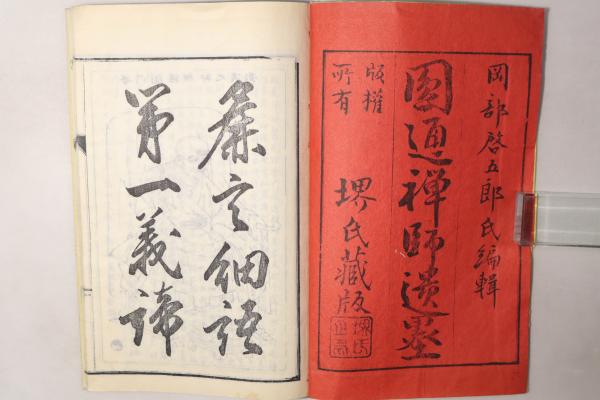 岡部啓五郎氏編輯
圓通禅師遺墨
版權
所有
堺氏藏版
麁言細語
第一義諦